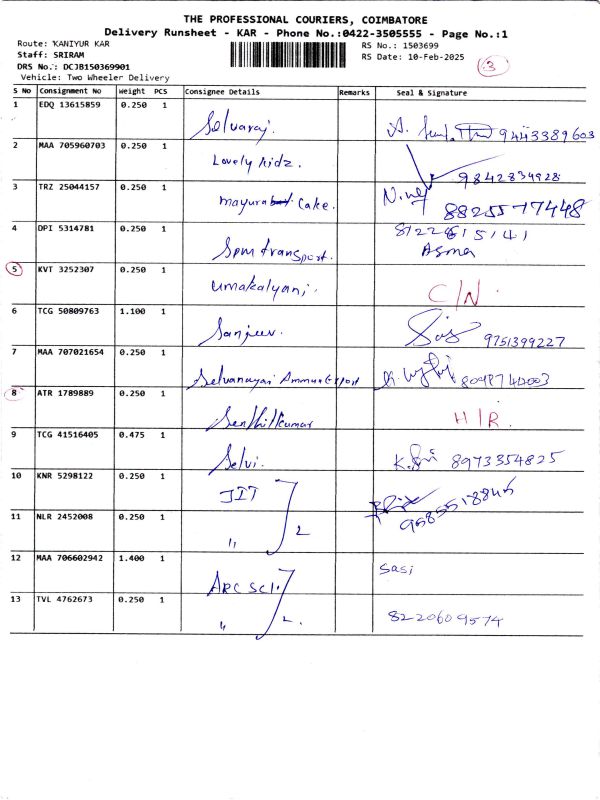 THE PROFESSIONAL COURIERS, COIMBATORE
Delivery Runsheet - KAR - Phone No.:0422-3505555 - Page No.:1
Route: KANIYUR KAR
RS No.: 1503699
Staff: SRIRAM
RS Date: 10-Feb-2025
DRS No.: DCJB150369901
3
Vehicle: Two Wheeler Delivery
S No Consignment No Weight PCS Consignee Details Remarks Seal & Signature
1 EDQ 13615859 0.250 1 Selvaraj. 9443389603
2 MAA 705960703 0.250 1 Lovely kidz. 9842834928
3 TRZ 25044157 0.250 1 mayura Cake. 8825577448
4 DPI 5314781 0.250 1 Spm transport. Asma
5 KVT 3252307 0.250 1 umakalyani. C/N
6 TCG 50809763 1.100 1 Sanjeev. 9751399227
7 MAA 707021654 0.250 1 Selvanayai Export
8 ATR 1789889 0.250 1 Senthilkumar H/R.
9 TCG 41516405 0.475 1 Selvi. 8973354825
10 KNR 5298122 0.250 1 JIT
11 NLR 2452008 0.250 1 " 2
12 MAA 706602942 1.400 1 ARC SCI. sasi
13 TVL 4762673 0.250 1 " 2. 8220609574